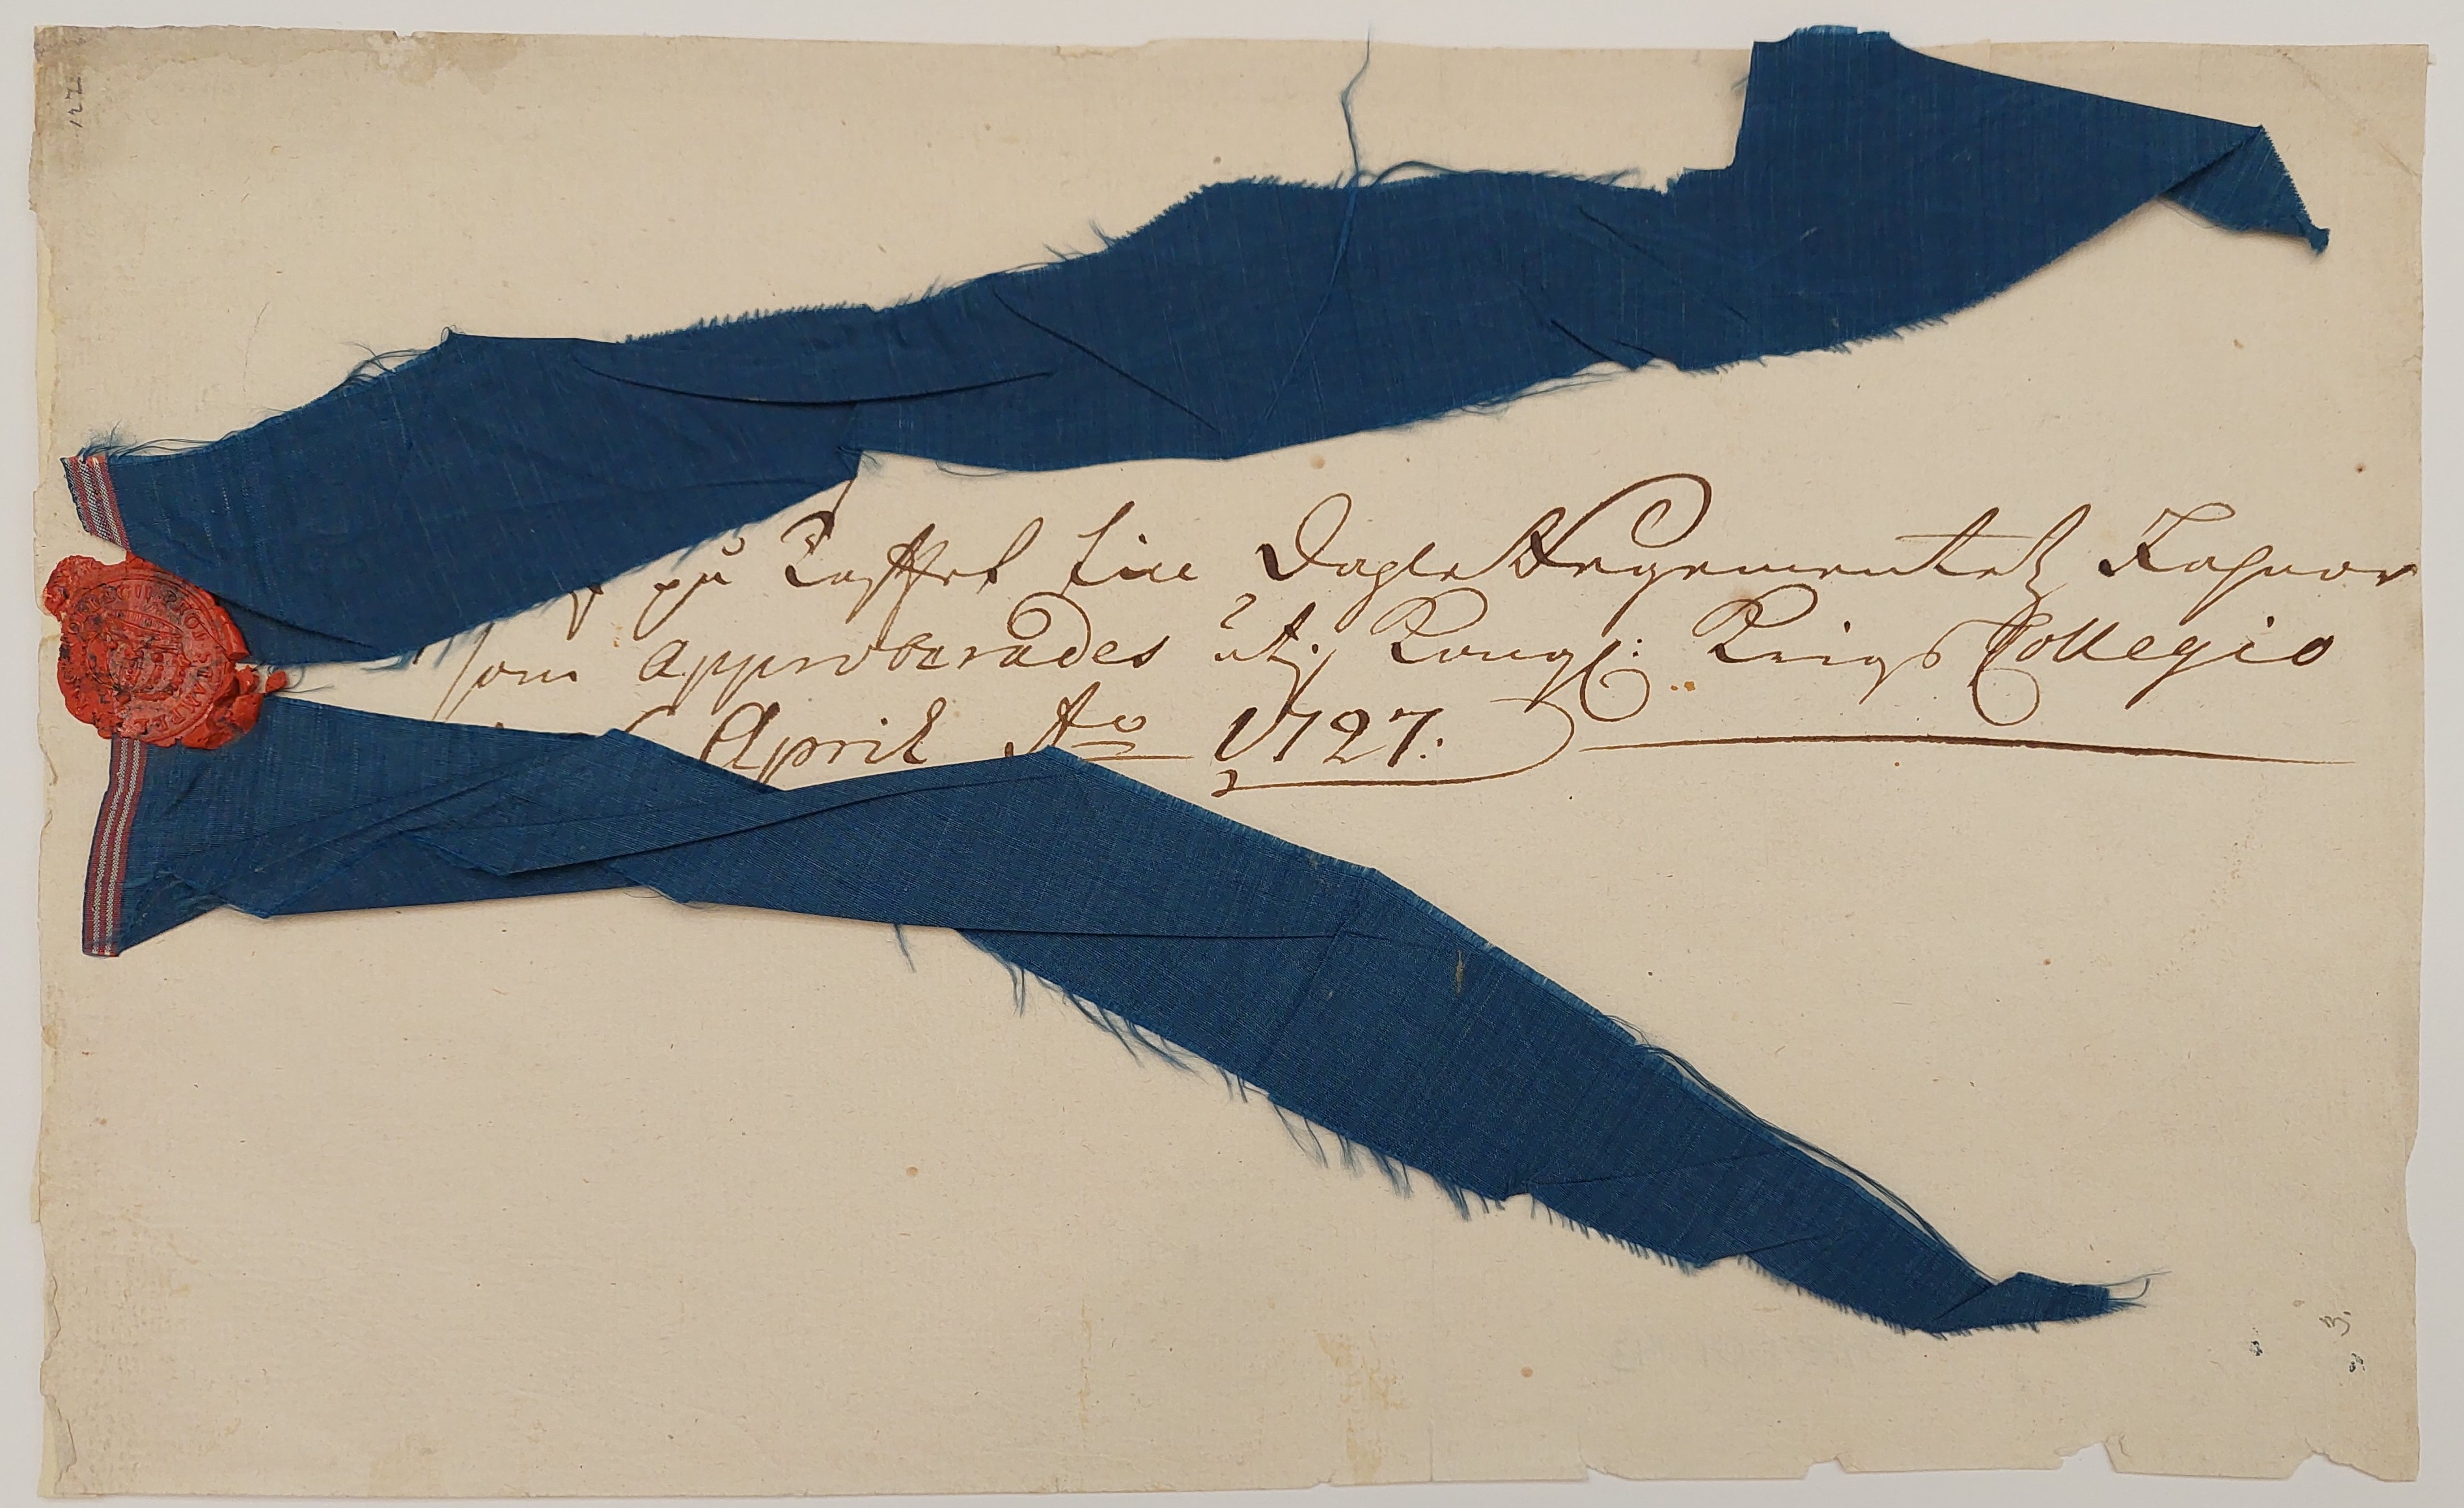 på Taftet till Dahls Regementetz Fahnor
som approberades uti Kongl: Krigs Collegio
April Ao 1727:
127
3.